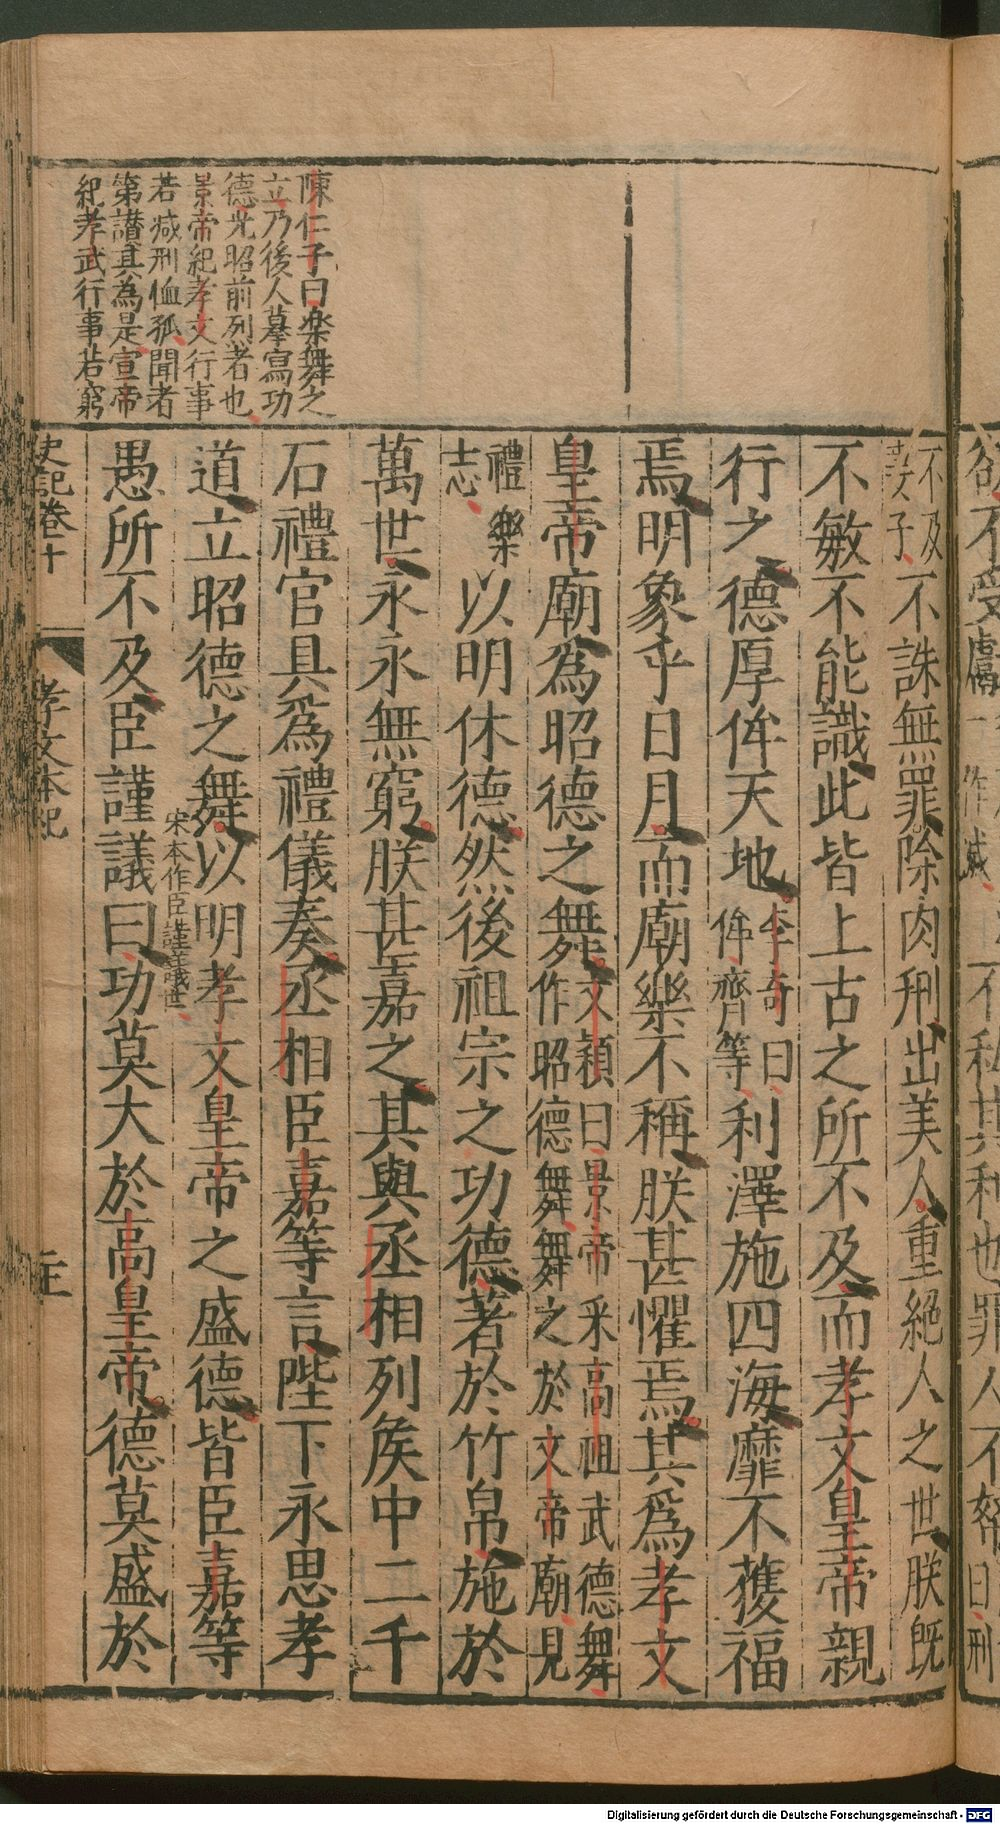 欲不受獻
不私其利也罪人不帑
曰刑
陳仁子曰樂舞之
立乃後人摹寫功
德光昭前列者也
景帝紀孝文行事
若减刑恤孤聞者
第讃其為是宣帝
紀孝武行事若窮
不及妻子不誅無罪除肉刑出美人重絕人之世朕旣
不敏不能識此皆上古之所不及而孝文皇帝親
行之德厚侔天地李奇曰侔齊等利澤施四海靡不獲福
焉明象乎日月而廟樂不稱朕甚懼焉其爲孝文
皇帝廟爲昭德之舞文穎曰景帝采高祖武德舞作昭德舞舞之於文帝廟見
禮樂志以明休德然後祖宗之功德著於竹帛施於
萬世永永無窮朕甚嘉之其與丞相列矦中二千
石禮官具爲禮儀奏丞相臣嘉等言陛下永思孝
道立昭德之舞以明孝文皇帝之盛德皆臣嘉等
宋本作臣謹議世
愚所不及臣謹議曰功莫大於高皇帝德莫盛於
史記卷十 孝文本紀
Digitalisierung gefördert durch die Deutsche Forschungsgemeinschaft - DFG